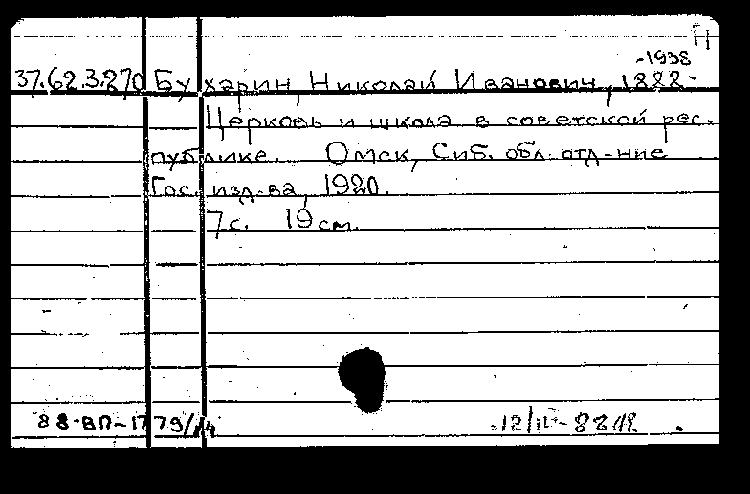 П
-1938
37.62.3.270 Бухарин, Николай Иванович, 1888-
Церковь и школа в советской рес-
публике. Омск, Сиб. обл. отд-ние
Гос. изд-ва, 1920.
7 с. 19 см.
88-ВП-1779/14